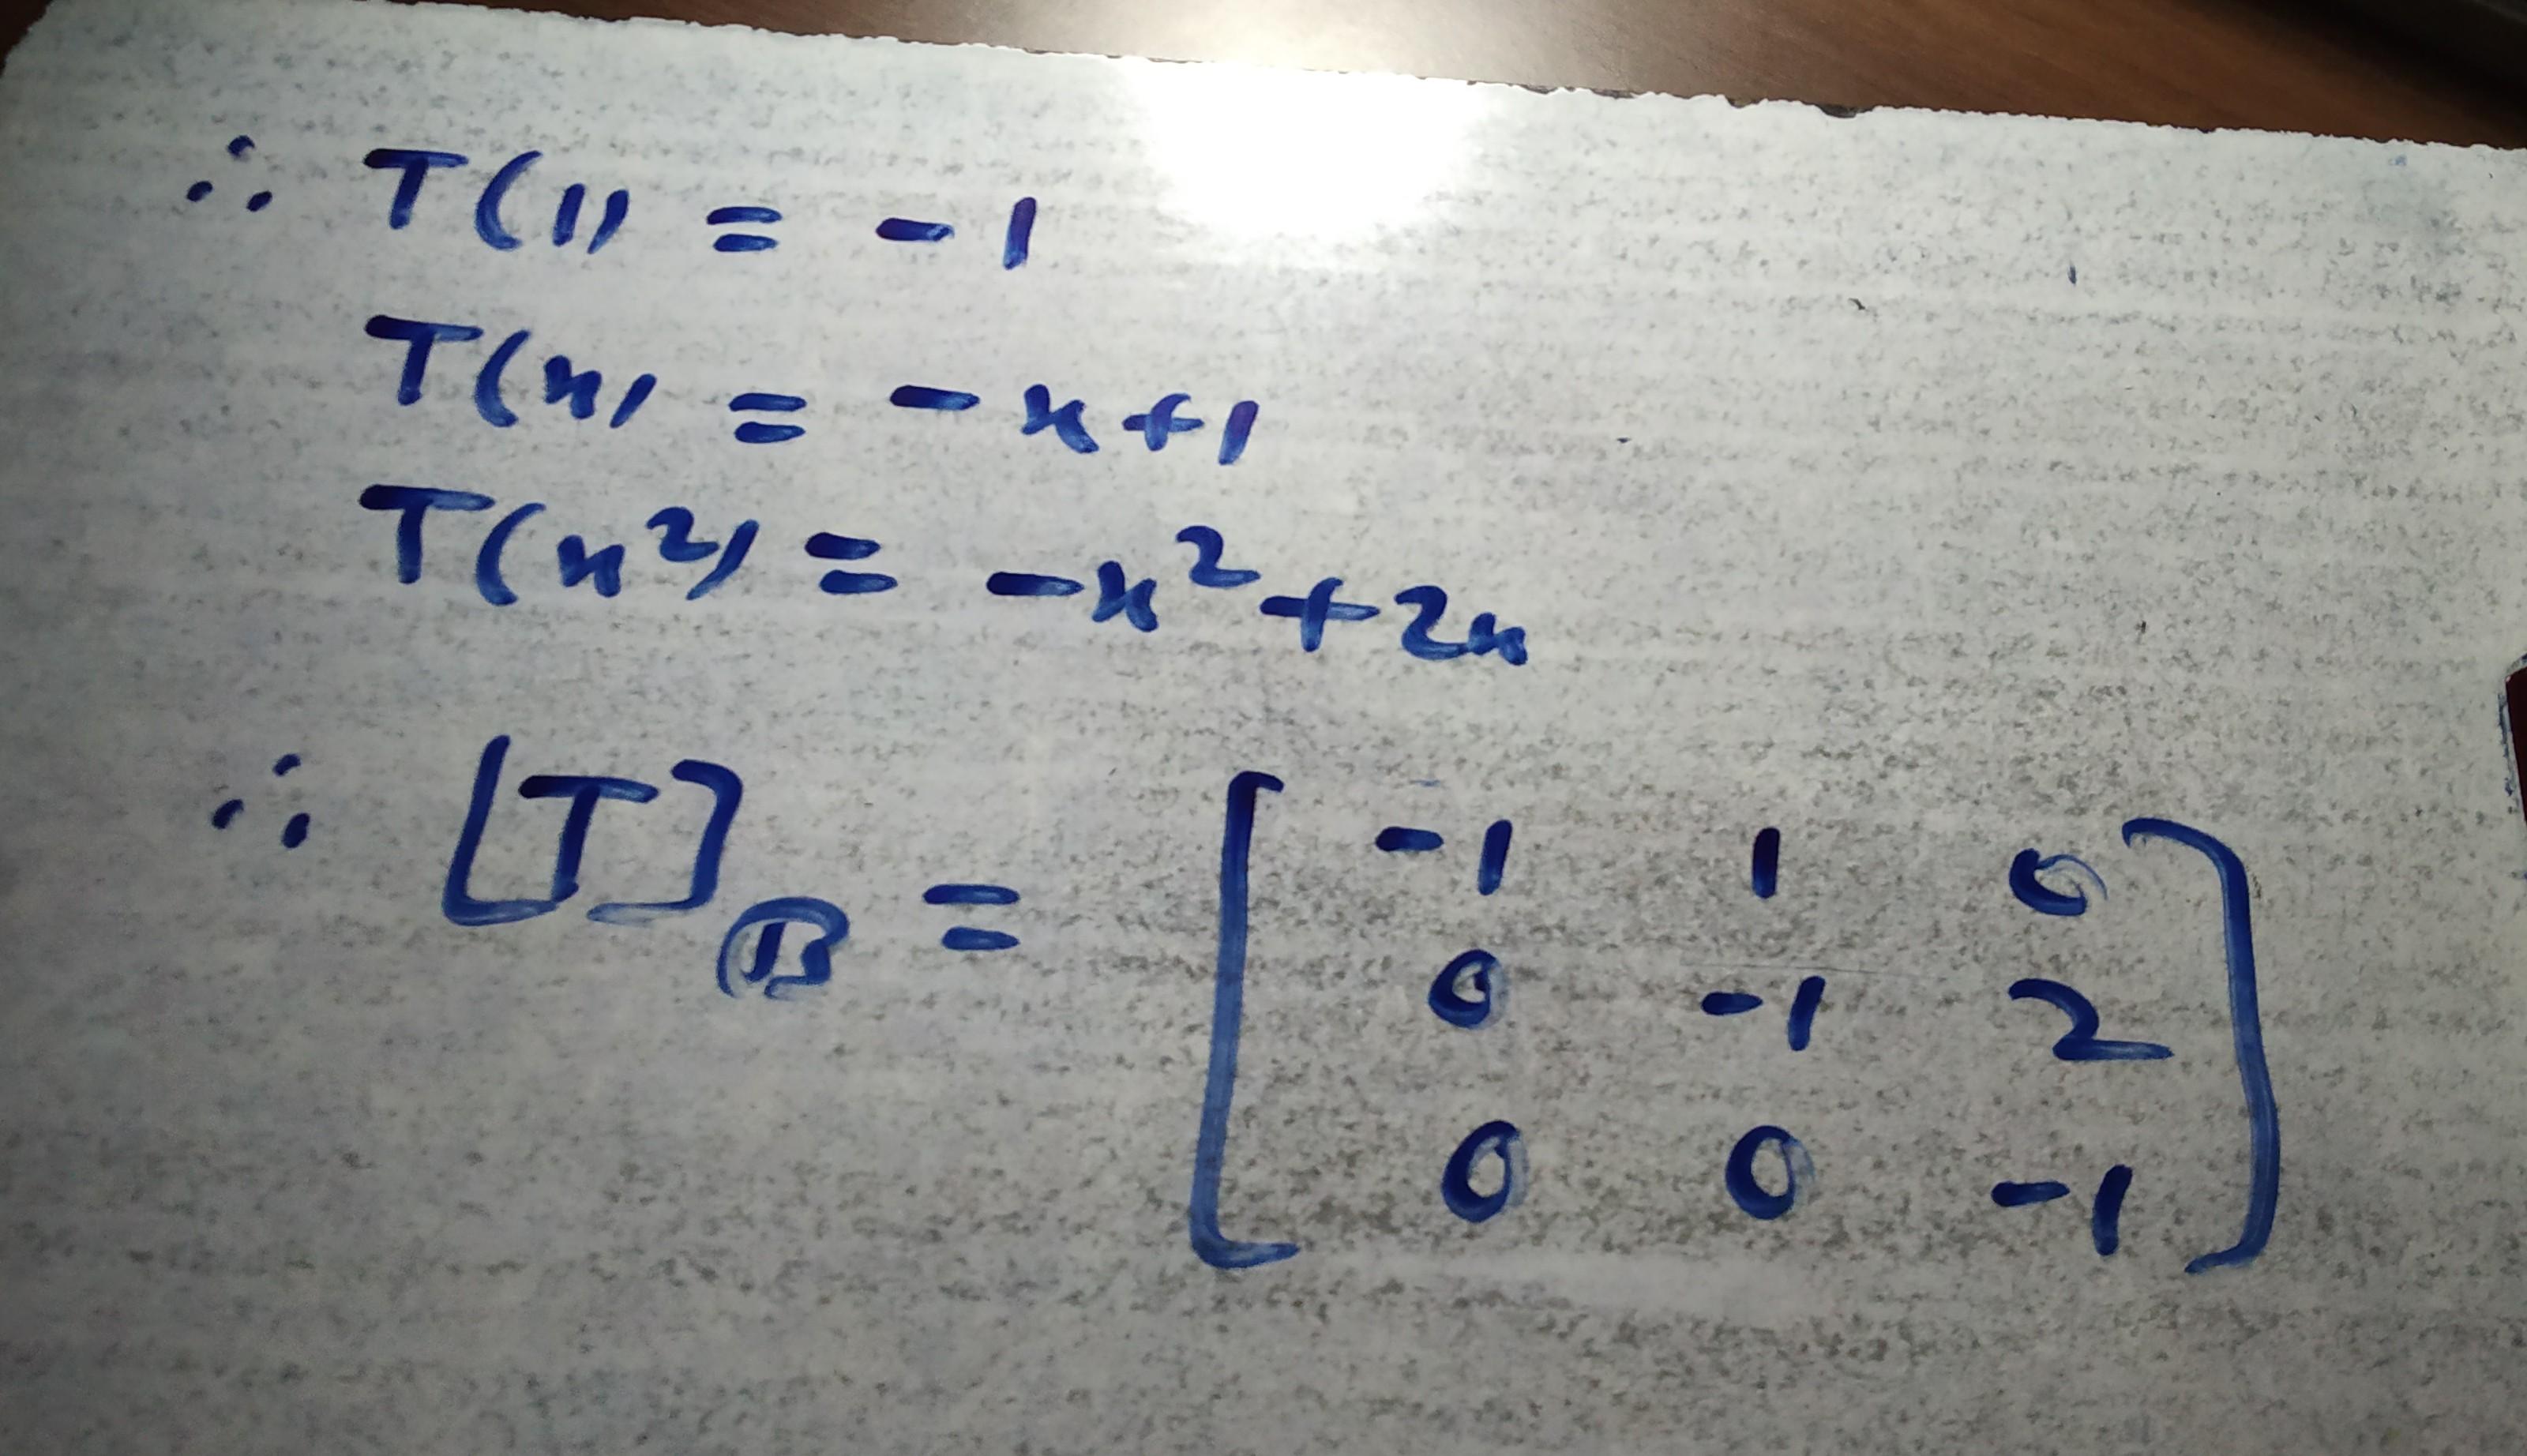 ∴ T(1) = -1
T(x) = -x+1
T(x²) = -x²+2x
∴ [T]_B = [ -1 1 0
0 -1 2
0 0 -1 ]